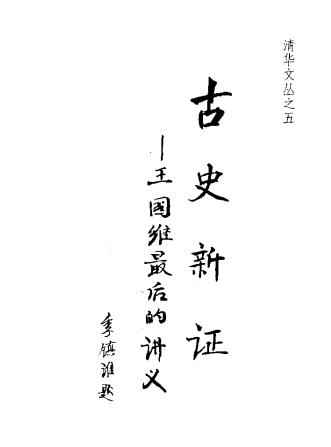 清华文丛之五
古史新证
—王国维最后的讲义
季镇淮题